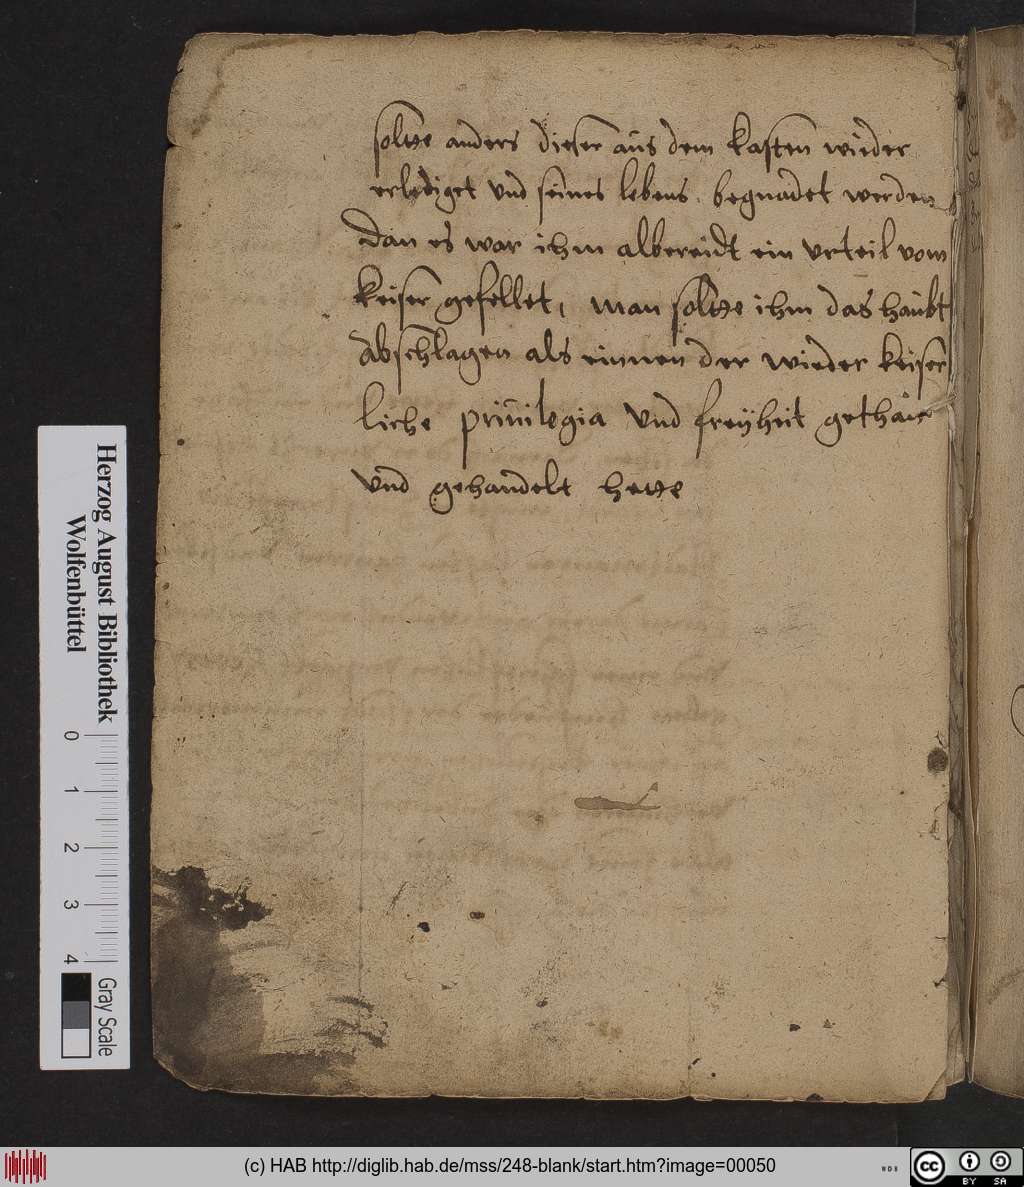 soltte anders dieser aus dem kasten wieder
erlediget vnd seines lebens begnadet werden
dan es war ihm albereidt ein vrteil vom
keiser gefellet, man soltte ihm das haubt
abschlagen als einnen der wieder keiser
liche priuilegia vnd freyheit gethan
vnd gehandelt hette
Herzog August Bibliothek
Wolfenbüttel
0 1 2 3 4
Gray Scale
(c) HAB http://diglib.hab.de/mss/248-blank/start.htm?image=00050
WDB
cc BY SA